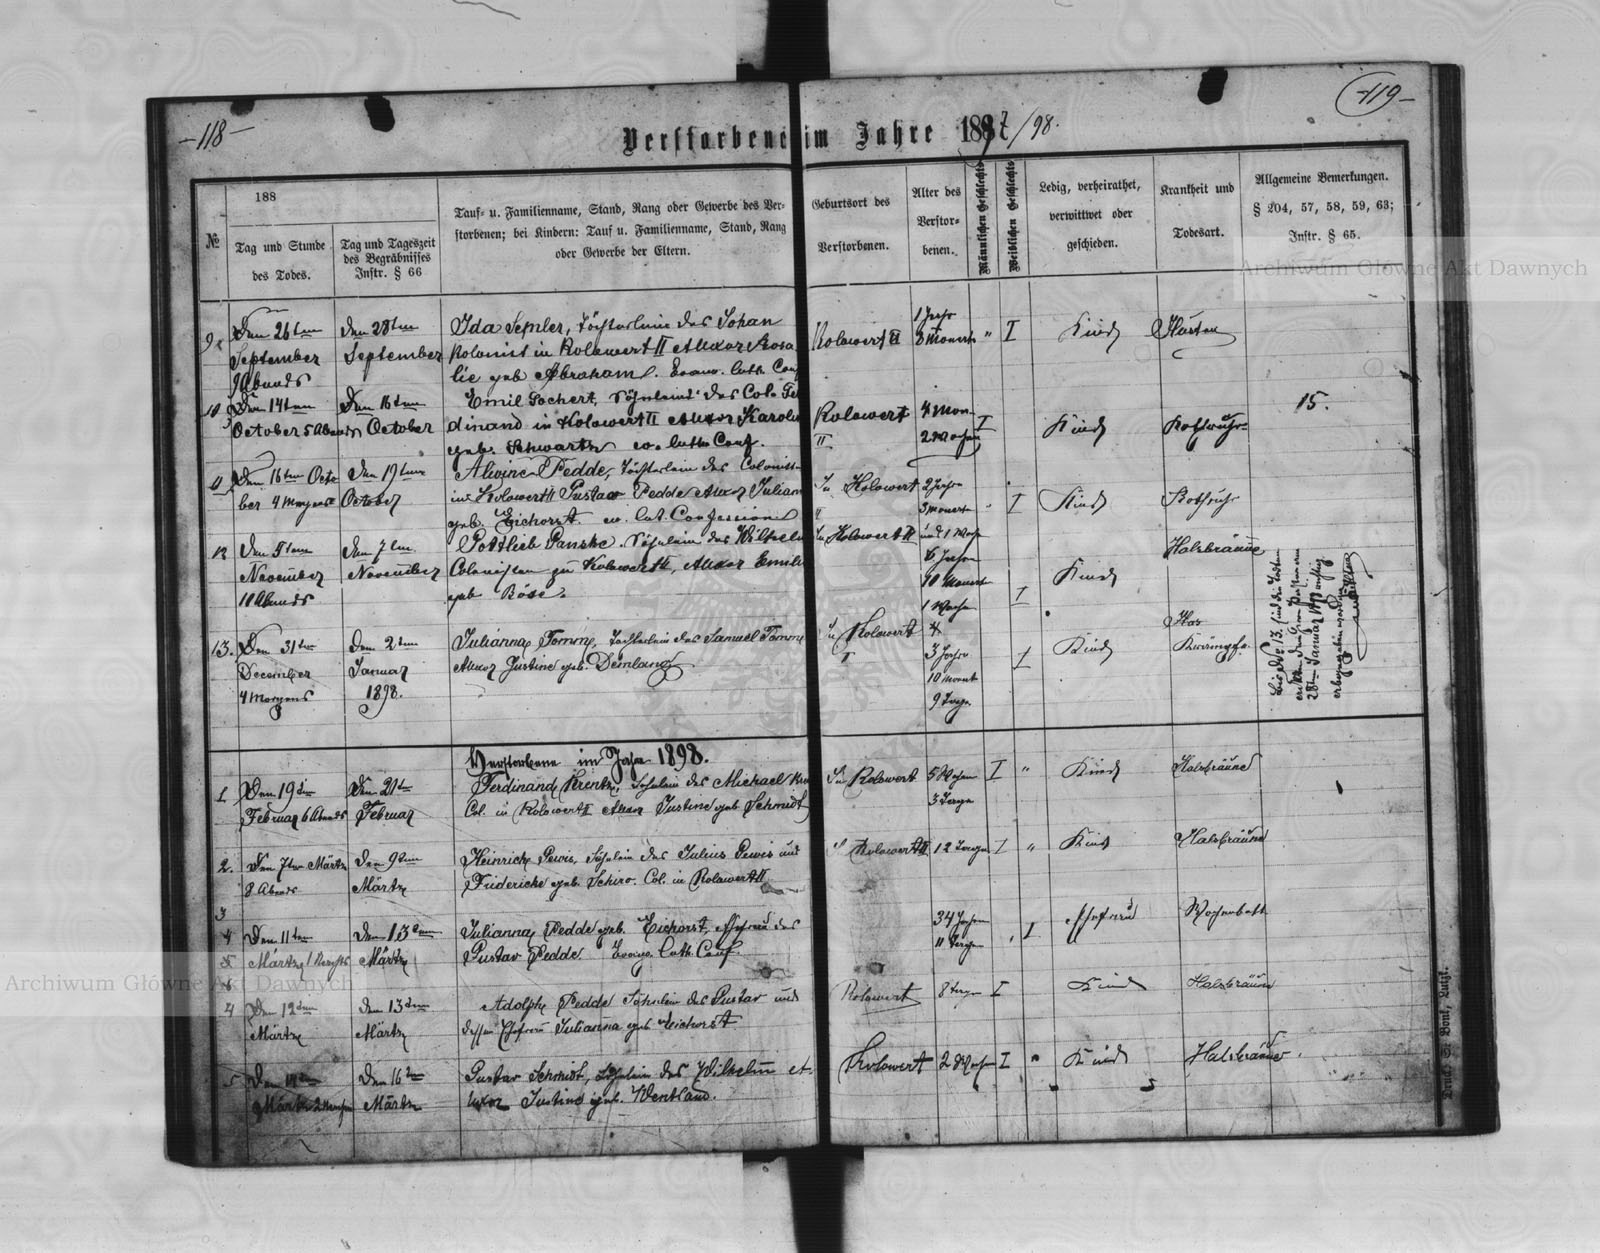 -118-
-119-
Verstorbene im Jahre 1897/98.
№
188
Tag und Stunde
des Todes.
Tag und Tageszeit
des Begräbnisses
Instr. § 66
Tauf- u. Familienname, Stand, Rang oder Gewerbe des Ver-
storbenen; bei Kindern: Tauf u. Familienname, Stand, Rang
oder Gewerbe der Eltern.
Geburtsort des
Verstorbenen.
Alter des
Verstor-
benen.
Männlichen Geschlechts
Weiblichen Geschlechts
Ledig, verheirathet,
verwittwet oder
geschieden.
Krankheit und
Todesart.
Allgemeine Bemerkungen.
§ 204, 57, 58, 59, 63;
Instr. § 65.
Archiwum Główne Akt Dawnych
9
Den 26ten
September
9 Abends
Den 28ten
September
Ida Semler, Töchterlein des Johan
Kolonist in Kolowert II Uxor Rosa
lie geb Abraham. Evang. luth. Conf
Kolowert II
1 Jahr
8 Monate
" I
Kind
Husten
10
Den 14ten
October 5 Abends
Den 16ten
October
Emil Gochert, Söhnlein des Col. Fer
dinand in Kolowert II Uxor Karolin
geb. Schwartz ev. luth. Conf.
Kolowert
II
4 Mon
2 Wochen
I
Kind
15.
11
Den 16ten Octo
ber 4 Morgens
Den 19ten
October
Alwine Pedde, Töchterlein des Colonist
in Kolowert II Gustav Pedde Uxor Julian
geb. Eichorst. ev. lut. Confession
In Kolowert
II
2 Jahre
3 Monate
und 1 Woche
" I
Kind
12
Den 5ten
November
11 Abends
Den 7ten
November
Gottlieb Panske, Söhnlein des Wilhelm
Colonisten zu Kolowert II, Uxor Emili
geb Böse.
In Kolowert II
6 Jahre
10 Monate
1 Woche
I
Kind
Halsbräune
13.
Den 31ten
December
4 Morgens
Den 2ten
Januar
1898.
Julianna Tomm, Töchterlein des Samuel Tomm
Uxor Justine geb. Demland
In Kolowert
I
3 Jahre
10 Monate
9 Tage
I
Kind
Verstorbene im Jahre 1898.
1
Den 19ten
Februar 6 Abends
Den 21ten
Februar
Ferdinand Krentz, Söhnlein des Michael Kre
Col. in Kolowert II Uxor Justine geb Schmidt
In Kolowert
5 Wochen
3 Tage
I "
Kind
Halsbräune
2.
Den 7ten Märtz
8 Abends
Den 9ten
Märtz
Heinrich Pewis, Söhnlein des Julius Pewis und
Fridericke geb. Schiro. Col. in Kolowert II
Kolowert II
12 Tage
I "
Kind
Halsbräune
3
4
Den 11ten
Märtz 1 Nachts
Den 13ten
Märtz
Julianna Pedde geb. Eichorst, Ehefrau des
Gustav Pedde Evang. Luth. Conf.
34 Jahre
11 Tage
I
Ehefrau
Wochenbett
Archiwum Główne Akt Dawnych
4
Den 12ten
Märtz
Den 13ten
Märtz
Adolph Pedde Söhnlein des Gustav und
dessen Ehefrau Julianna geb Eichorst
Kolowert
8 Tage
I
Kind
Halsbräune
5
Märtz
Den 16ten
Märtz
Gustav Schmidt, Söhnlein des Wilhelm et
Uxor Justine geb. Wentland.
Kolowert
2 Woche
I "
Kind
Halsbräune